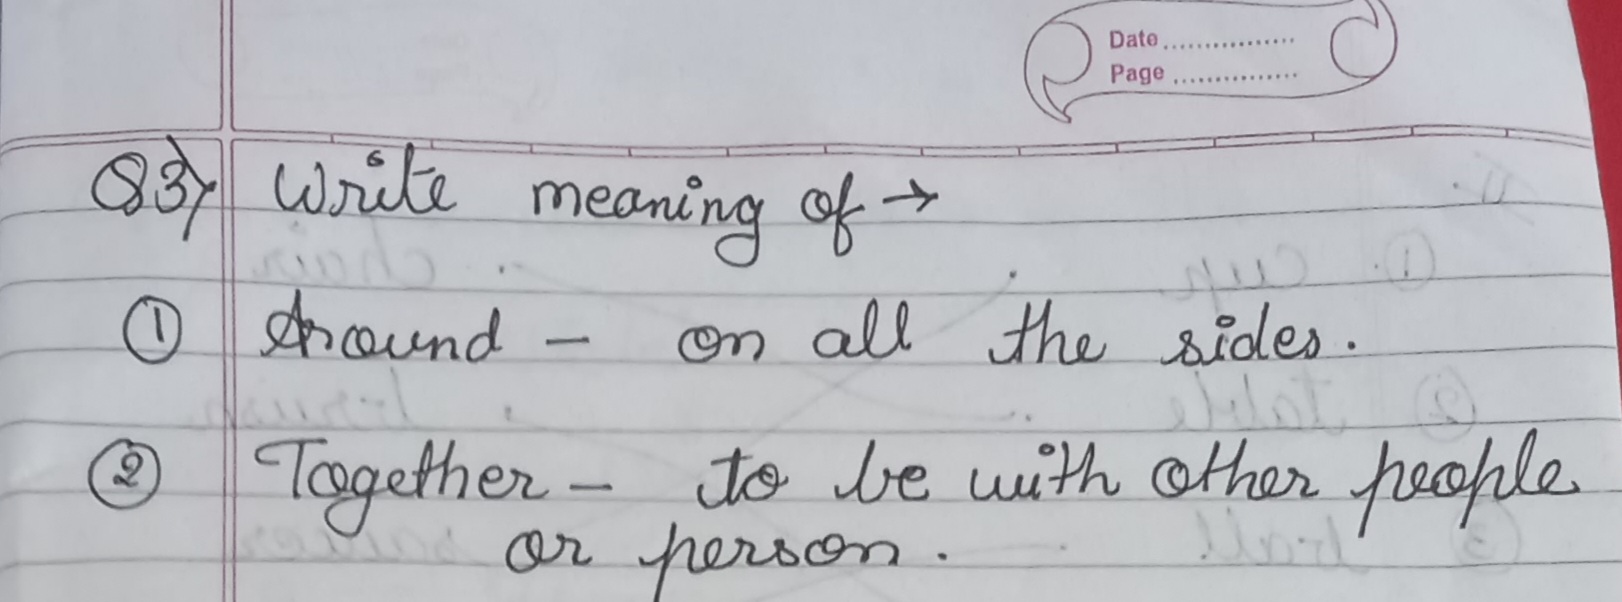 Date ................
Page ...............
Q3) Write meaning of →
① Around - on all the sides.
② Together - to be with other people
or person.